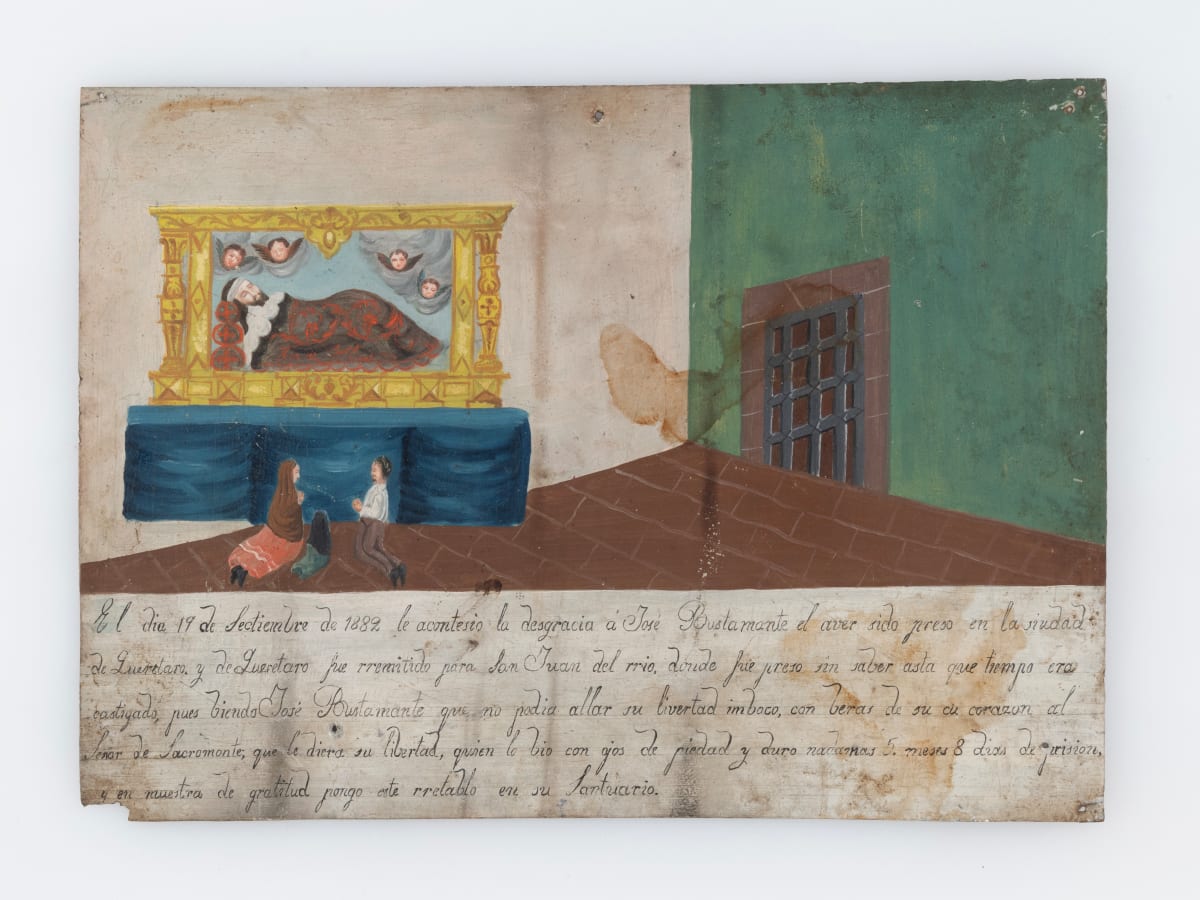 El dia 19 de Septiembre de 1882 le acontesio la desgracia á José Bustamante el aver sido preso en la siudad
de Queretaro, y de Queretaro fue rremitido para San Juan del rrio, donde fue preso sin saber asta que tiempo era
castigado, pues biendo José Bustamante que no podia allar su livertad imboco, con beras de su cu corazon al
Señor de Sacromonte, que le diera su libertad, quien lo bio con ojos de piedad y duro nadamas 5. meses 8 dias de prision,
y en muestra de gratitud pongo este rretablo en su Santuario.